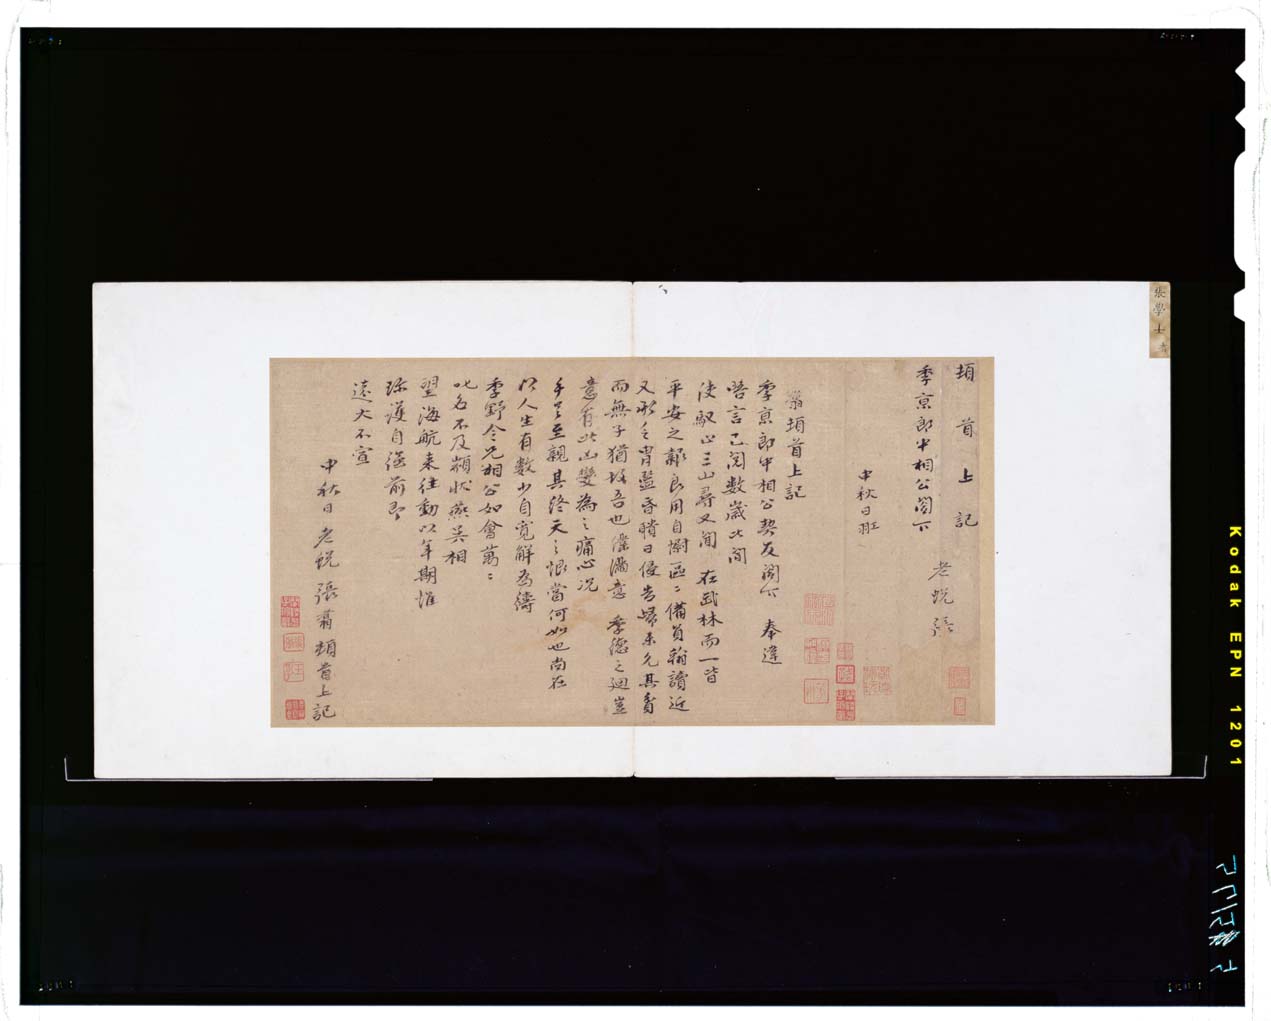 張學士
頓首上記
季京郎中相公閣下
老悅張
中秋日
翥頓首上記
季京郎中相公契友閣下 奉違
晤言已閱數歲比聞
使馭止三山尋又聞 在武林而一皆
平安之報良用自慰區區備員翰讀近
又形之胄監昏眊日侵告歸未允其眷
而無子猶姪吾也 意 季德之迴豈
意有此凶變為之痛心况
手足至親其終天之恨當何如也尚在
以人生有數少自寬解為禱
季野令兄相公如會萬萬
叱名不及顓狀燕吳相
望海航來往動以年期惟
珍護自 前即
遠大不宣
中秋日 老悅張翥頓首上記
Kodak EPN 1201